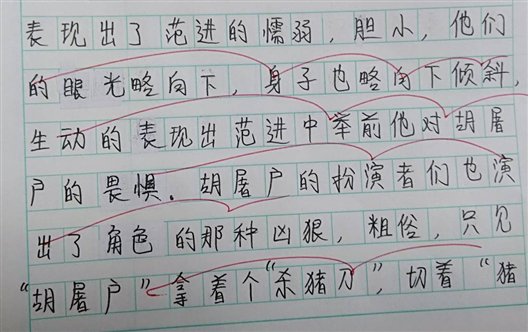 表现出了范进的懦弱，胆小，他们
的眼光略向下，身子也略向下倾斜，
生动的表现出范进中举前他对胡屠
户的畏惧。胡屠户的扮演者们也演
出了角色的那种凶狠，粗俗，只见
“胡屠户”拿着个“杀猪刀”，切着“猪